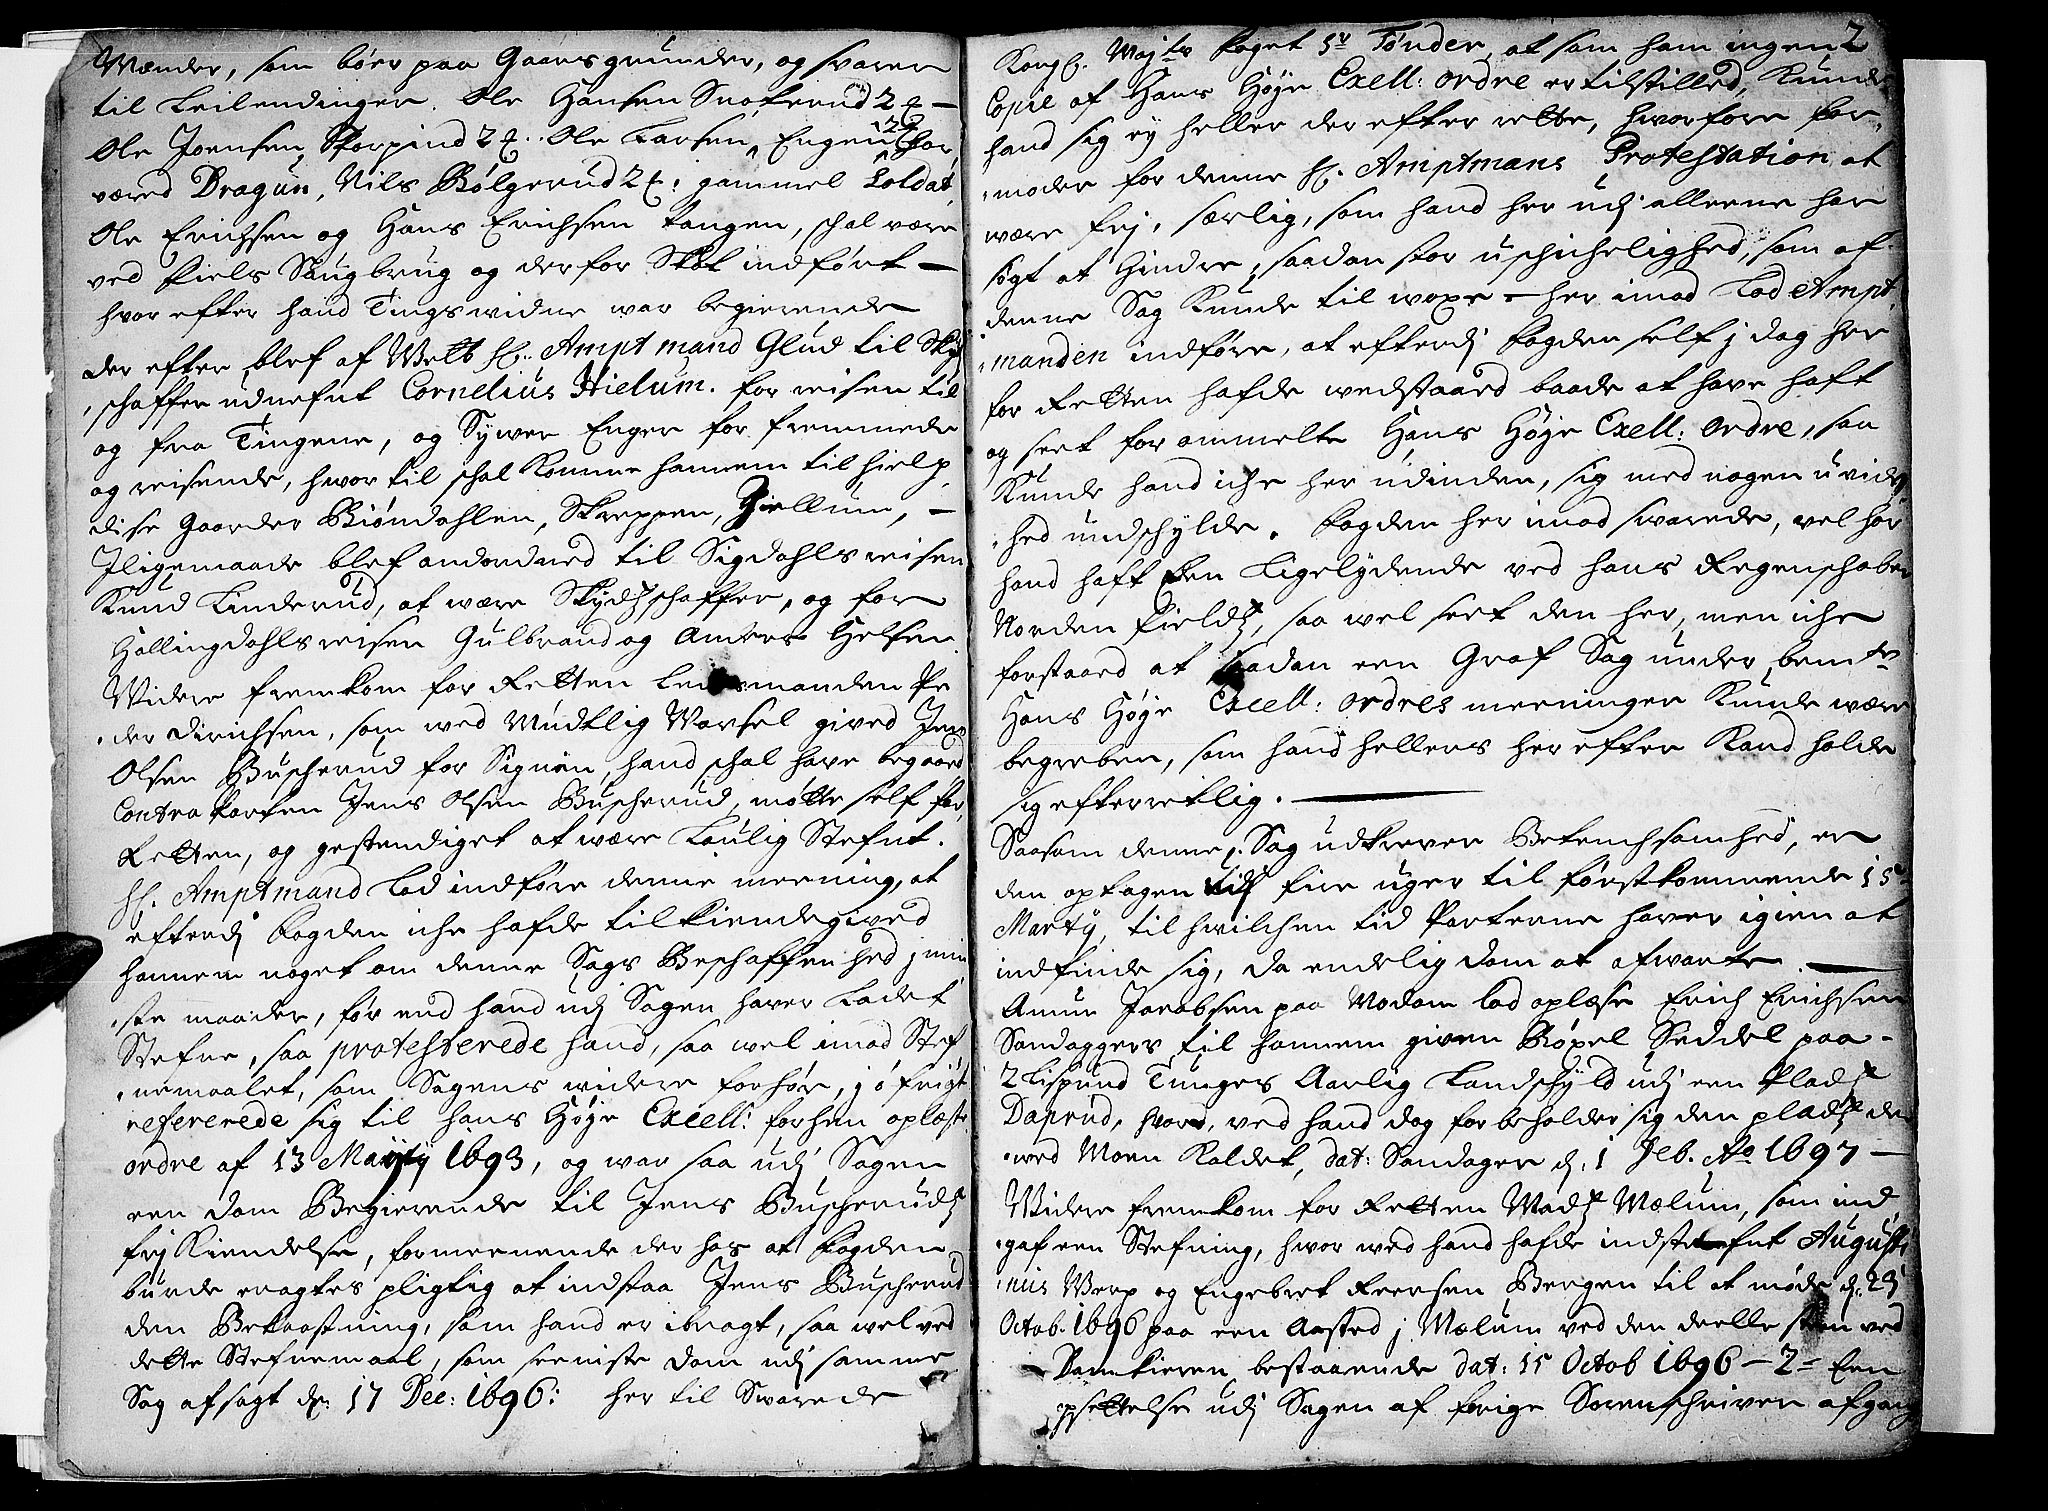 Mænder, som böer paa Gaarsgrunder, og svarer
til Leilendinger. Ole Hansen Snokerud 2
Ole Joensen, Skorpind 2 Ole Larsen, Engen 2 har
væred Dragun, Nils Bølgerud 2 : gammel Soldat,
Ole Erichsen og Hans Erichsen tangen, schal være
ved Fiels Saugbrug og derfor Skat indført –
hvor efter hand Tingswidne war begierende
der efter blef af Welb H: Ampt mand Glud til Skyds
schaffer udnefnt Cornelius Hielum. for reisen til
og fra Tingene, og Sywer Enger for fremmede
og reisende, hwor til schal komme hannem til hielp,
disse Gaarder Biøndahlen, Skreppen, Giellum, –
Jligemaade blef andordned til Sigdahls reisen
Knud Linderud, at være Skydsschaffer, og for
Hallingdahls reisen Gulbrand og Anders Helsen.
Widere fremkom for Retten Lensmanden Pe
der Dirichsen, som wed Mundtlig Warsel gived Jens
Olsen Buscherud for Signen, hand schal have begaaed
Contra Parten Jens Olsen Buscherud, møtte self for
Retten, og gestendiget at wære Laulig Stefnt.
H. Amptmand Lod indføre denne meening, at
efterdj fogden iche hafde tilkiendegived
hannem noget om denne Sags Beschaffenhed j min
ste maader, før end hand udj Sagen haver Ladet
Stefne, saa protesterede hand, saa wel imod Stef
nemaalet, som Sagens widere forhør, j øfrigt
refererede sig til hans Høye Excell: forhen oplæste
ordre af 13 Martij 1693, og war saa udj Sagen
een dom Begierende til Jens Buscheruds
frj Kiendelse, formeenende der hos at fogden
burde eragtes pligtig at indstaa Jens Buscherud
den Bekaastning, som hand er ibragt, saa wel ved
dette Stefnemaal, som seeniste dom udj samme
Sag afsagt d: 17 Dec: 1696: her til Swarede
2
Kongl. Maj:ts foget Sr Tønder, at som ham ingen
Copie af Hans Høye Exell: ordre er tilstilled, kunde
hand sig ey heller der efter rette, hworfore for
moder for denne H. Amptmans Protestation at
wære frj, særlig, som hand her udj alleene har
søgt at hindre, saadan stor uschichelighed, som af
denne Sag kunde til woxe – her imod Lod Ampt
manden indføre, at efterdj fogden self j dag her
for Retten hafde wedstaaed baade at have haft
og seet for ommelte Hans Høye Exell: ordre, saa
kunde hand iche her udinden, sig med nogen uviden
hed undschylde. fogden her imod swarede, vel har
hand haft Een Ligelydende ved hans Regenschaber
Norden Fields, saa wel seet den her, men iche
forstaaed at saadan een Graf Sag under bemte
Hans Høye Excell: ordres meeninger kunde wære
begreben, som hand hellers her efter kand holde
sig efterretlig.
Saasom denne Sag udkrever Betenchsomhed, er
den optagen udj fire uger til førstkommende 15
Martij, til hwilchen tid Parterne haver igien at
indfinde sig, da endelig dom at afwarte.
Amun Jacobsen paa Modam lod oplæse Erich Erichsen
Sandaggers til hannem given Bøxel Seddel paa
2 Lispund Tunges Aarlig Landschyld udj een Plads
Daprud, hvor ved hand dog forbeholder sig den plads der
wed Moen kaldet, dat: Sandager d: 1 Feb. Ao 1697 –
Widere fremkom for Retten Mads Mælum, som ind
gaf een Stefning, hwor wed hand hafde indstefnt Augusti
nus Werp og Engebret Reersen Bergen til at møde d: 23
Octob. 1696 paa een Aasted j Mælum ved den deelle sten ved
Damkieren bestaaende dat: 15 Octob 1696 – 2 = Een
opsettelse udj Sagen af forige Sorenschriver afgang